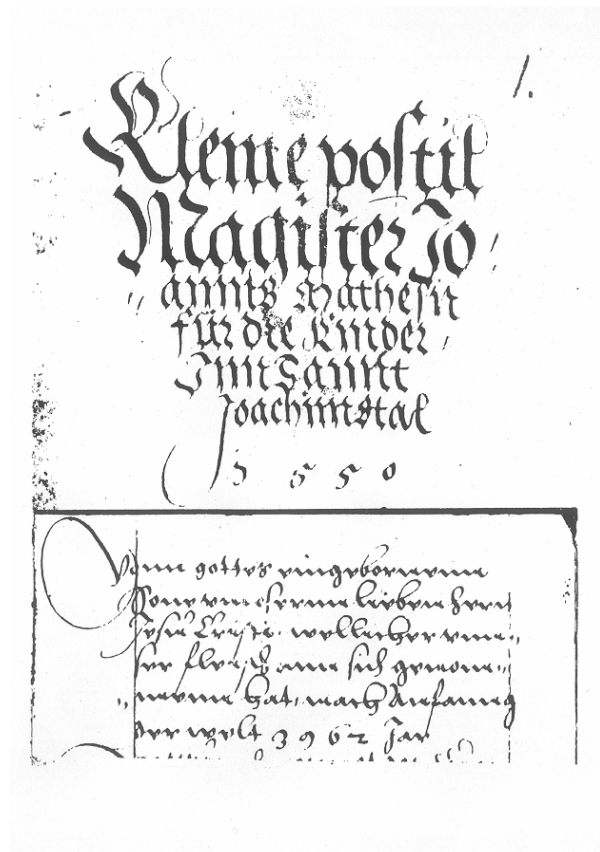 1.
Kleine postil
Magister Jo
annis Mathesii
für die Kinder
Inn Sannct
Joachimstal
1550
Vonn gottes eingebornenn
Sone unnserm lieben Herrn
Jesu Cristo, wellicher unn-
ser fleisch ann sich genom-
menn hat, nach Anfanng
der welt 3962 Jar